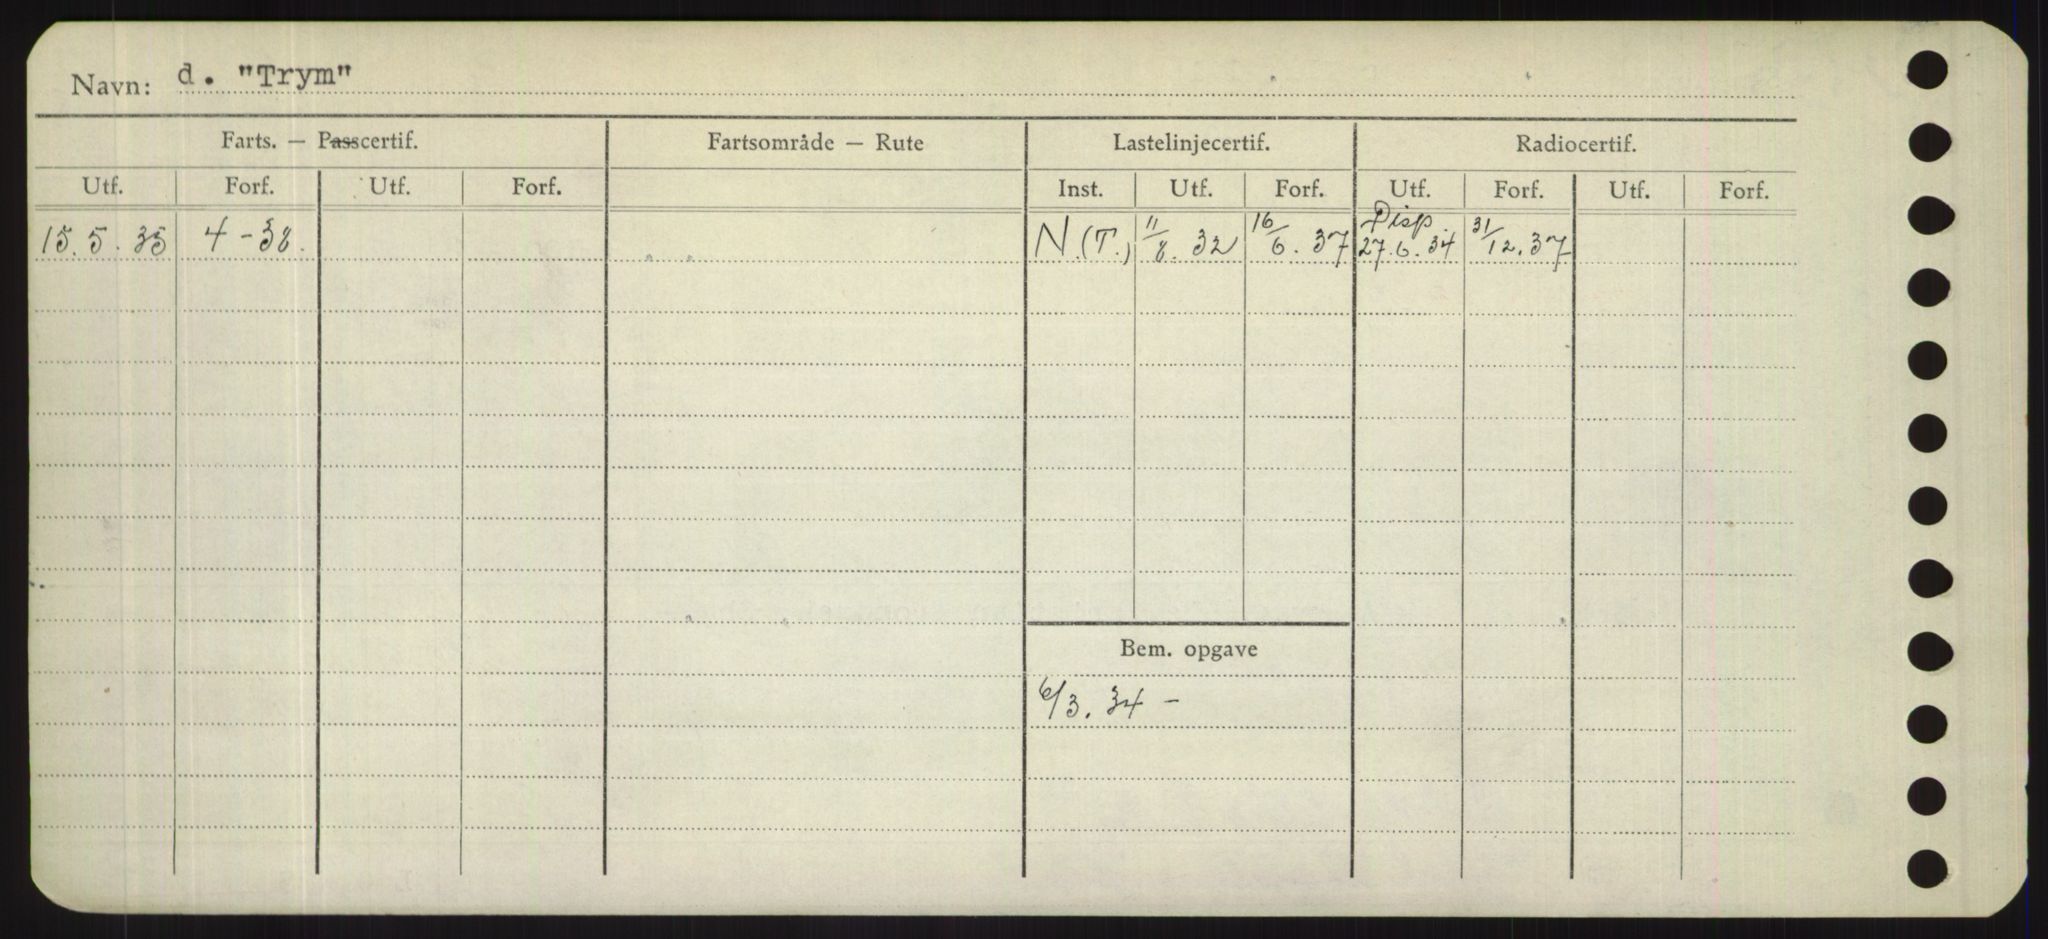 Navn: d. "Trym"
Farts. — Passcertif. Fartsområde — Rute Lastelinjecertif. Radiocertif.
Utf. Forf. Utf. Forf. Inst. Utf. Forf. Utf. Forf. Utf. Forf.
Disp.
15.5.35 4-38. N.(T.) 11/8.32 16/6.37 27.6.34 31/12.37
Bem. opgave
6/3.34 -